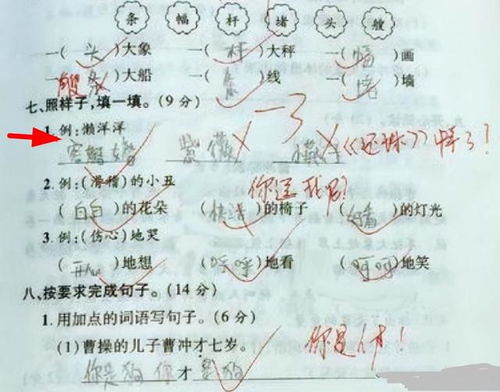 条 幅 杆 堵 头 艘
一(头)大象 一(杆)大秤 一(幅)画
一(艘)大船 一(条)线 一(堵)墙
七、照样子,填一填。(9 分)
1. 例:懒洋洋
《还珠》 ?
2. 例:(滑稽)的小丑 你逗我呢?
(白白)的花朵 ( )的椅子 ( )的灯光
3. 例:(伤心)地哭
(开心)地想 ( )地看 (呵呵)地笑
八、按要求完成句子。(14 分)
1. 用加点的词语写句子。(6 分)
(1) 曹操的儿子曹冲才七岁。 你是人才!
你是狗 你 才 是狗